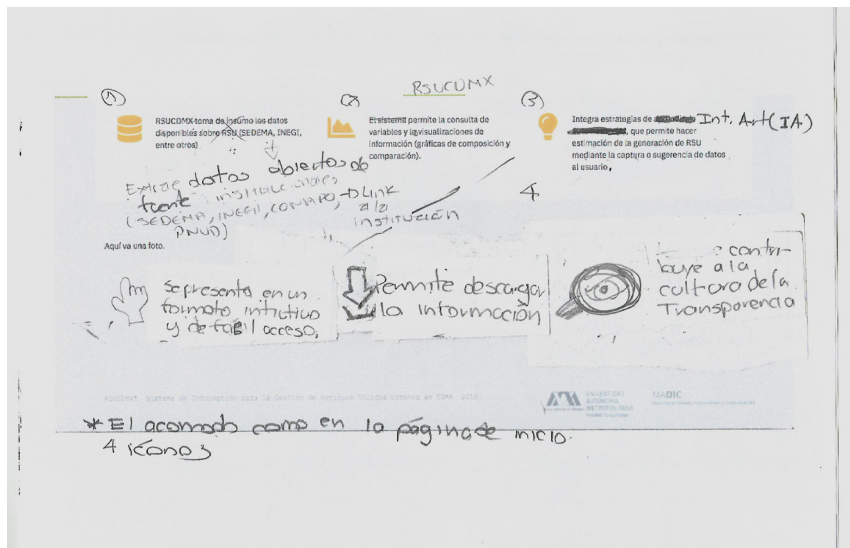 RSUCDMX
1
2
3
RSUCDMX toma de insumo los datos
disponibles sobre RSU (SEDEMA, INEGI,
entre otros)
Extrae datos abiertos de
fuente institucionales
(SEDEMA, INEGI, CONAPO,
PNUD)
→ Link
a la
institución
El sistema permite la consulta de
variables y la visualizaciones de
información (gráficas de composición y
comparación).
Integra estrategias de Int. Art (IA)
, que permite hacer
estimación de la generación de RSU
mediante la captura o sugerencia de datos
al usuario,
4
Aquí va una foto.
se presenta en un
formato intuitivo
y de fácil acceso.
Permite descargar
la información
contri-
buye a la
cultura de la
Transparencia
RSUCDMX. Sistema de Información para la Gestión de Residuos Sólidos Urbanos en CDMX, 2018
UNIVERSIDAD
AUTÓNOMA
METROPOLITANA
MADIC
* El acomodo como en la página de inicio.
4 íconos